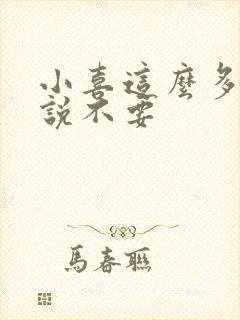 小喜這麼多
說不要
馬春聯